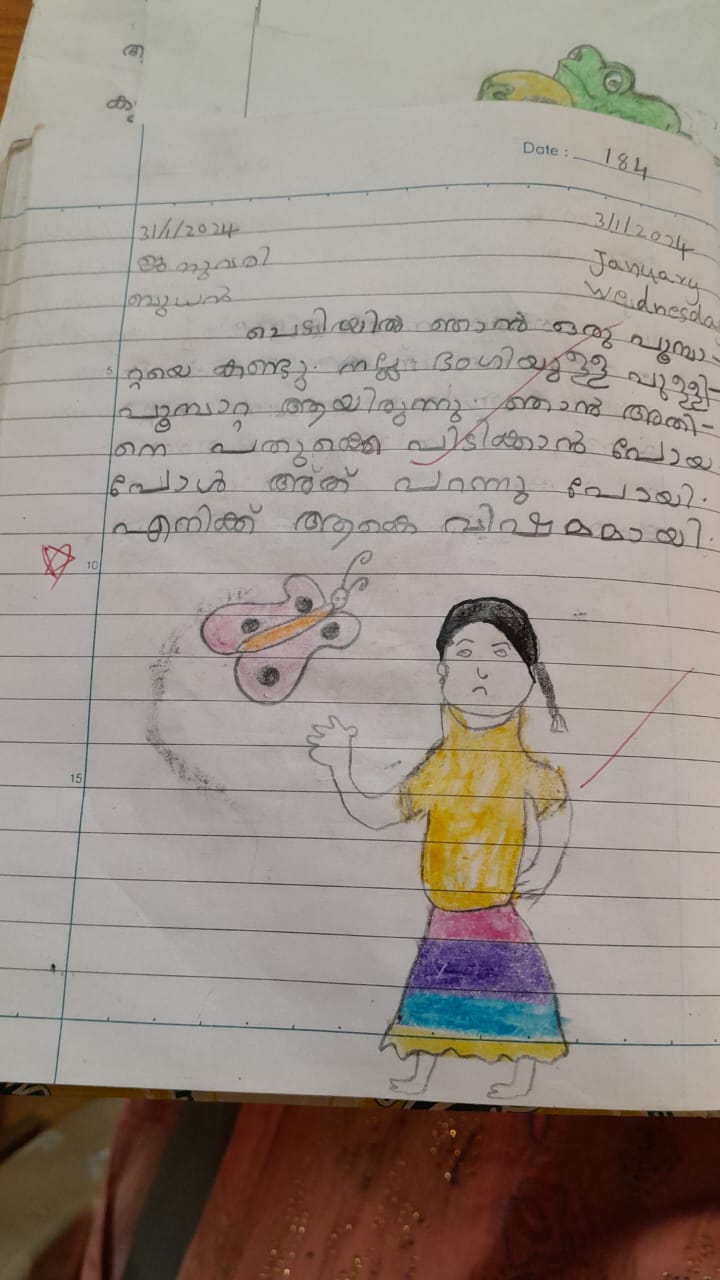 ആ
കൃ
Date : 184
31/1/2024 3/1/2024
ജനുവരി January
ബുധൻ Wednesday
ചെടിയിൽ ഞാൻ ഒരു പൂമ്പാ-
5 റ്റയെ കണ്ടു. നല്ല ഭംഗിയുള്ള പുള്ളി-
പൂമ്പാറ്റ ആയിരുന്നു. ഞാൻ അതി-
നെ പതുക്കെ പിടിക്കാൻ പോയ
പോൾ അത് പറന്നു പോയി.
എനിക്ക് ആകെ വിഷമമായി.
10
15